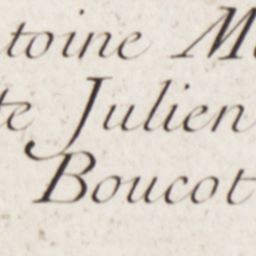 toine M
te Julien
Boucot